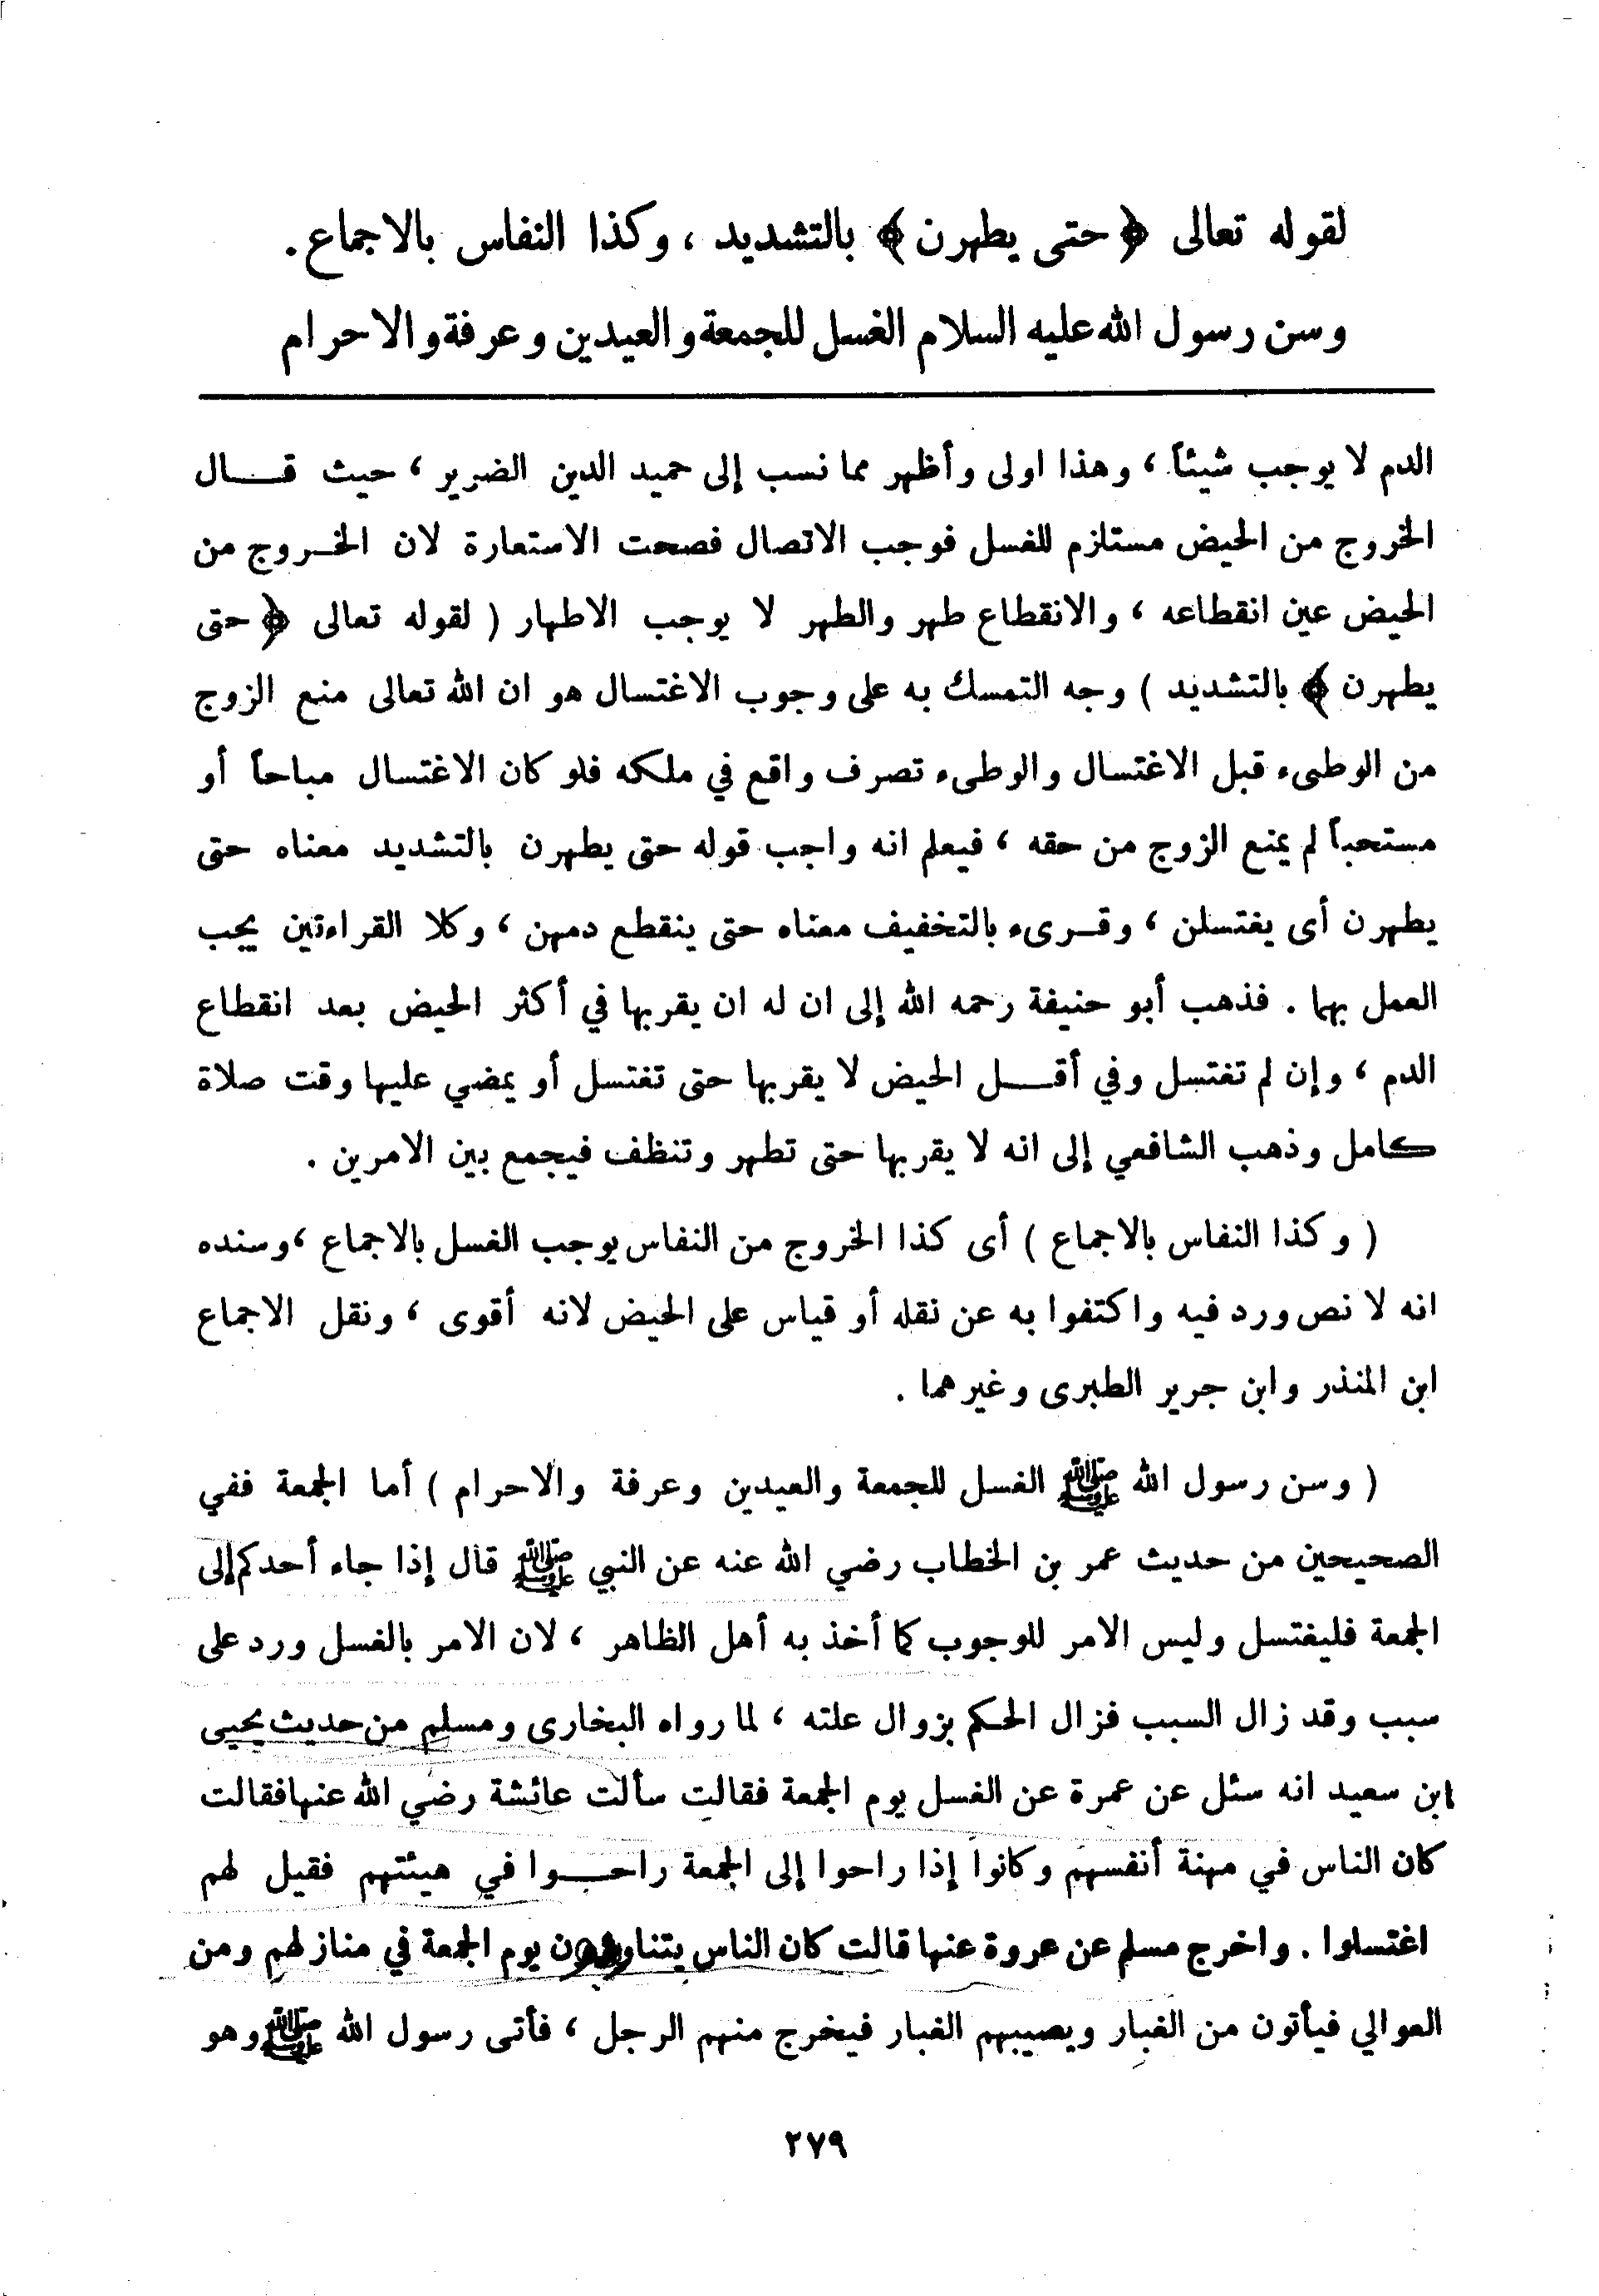 لقوله تعالى ﴿ حتى يطهرن ﴾ بالتشديد ، وكذا النفاس بالاجماع .
وسن رسول الله عليه السلام الغسل للجمعة والعيدين وعرفة والاحرام
الدم لا يوجب شيئاً ، وهذا اولى وأظهر مما نسب إلى حميد الدين الضرير ، حيث قـــال
الخروج من الحيض مستلزم للغسل فوجب الاتصال فصحت الاستعارة لان الخـروج من
الحيض عين انقطاعه ، والانقطاع طهر والطهر لا يوجب الاطهار ( لقوله تعالى ﴿ حتى
يطهرن ﴾ بالتشديد ) وجه التمسك به على وجوب الاغتسال هو ان الله تعالى منع الزوج
من الوطىء قبل الاغتسال والوطىء تصرف واقع في ملكه فلو كان الاغتسال مباحاً أو
مستحباً لم يمنع الزوج من حقه ، فيعلم انه واجب قوله حتى يطهرن بالتشديد معناه حتى
يطهرن أى يغتسلن ، وقـرىء بالتخفيف معناه حتى ينقطع دمهن ، وكلا القراءتين يجب
العمل بهما . فذهب أبو حنيفة رحمه الله إلى ان له ان يقربها في أكثر الحيض بعد انقطاع
الدم ، وإن لم تغتسل وفي أقـــل الحيض لا يقربها حتى تغتسل أو يمضي عليها وقت صلاة
كامل وذهب الشافعي إلى انه لا يقربها حتى تطهر وتنظف فيجمع بين الامرين .
( وكذا النفاس بالاجماع ) أى كذا الخروج من النفاس يوجب الغسل بالاجماع ، وسنده
انه لا نص ورد فيه واكتفوا به عن نقله أو قياس على الحيض لانه أقوى ، ونقل الاجماع
ابن المنذر وابن جرير الطبرى وغيرهما .
( وسن رسول الله ﷺ الغسل للجمعة والعيدين وعرفة والاحرام ) أما الجمعة ففي
الصحيحين من حديث عمر بن الخطاب رضي الله عنه عن النبي ﷺ قال إذا جاء أحدكم إلى
الجمعة فليغتسل وليس الامر للوجوب كما أخذ به أهل الظاهر ، لان الامر بالغسل ورد على
سبب وقد زال السبب فزال الحكم بزوال علته ، لما رواه البخارى ومسلم من حديث يحيى
ابن سعيد انه سئل عن عمرة عن الغسل يوم الجمعة فقالت سألت عائشة رضي الله عنها فقالت
كان الناس في مهنة أنفسهم وكانوا إذا راحوا إلى الجمعة راحـــوا في هيئتهم فقيل لهم
اغتسلوا . واخرج مسلم عن عروة عنها قالت كان الناس يوم الجمعة في منازلهم ومن
العوالي فيأتون من الغبار ويصيبهم الغبار فيخرج منهم الرجل ، فأتى رسول الله ﷺ وهو
٢٧٩